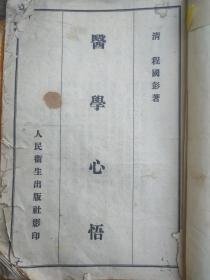 清 程國彭著
醫學心悟
人民衞生出版社影印